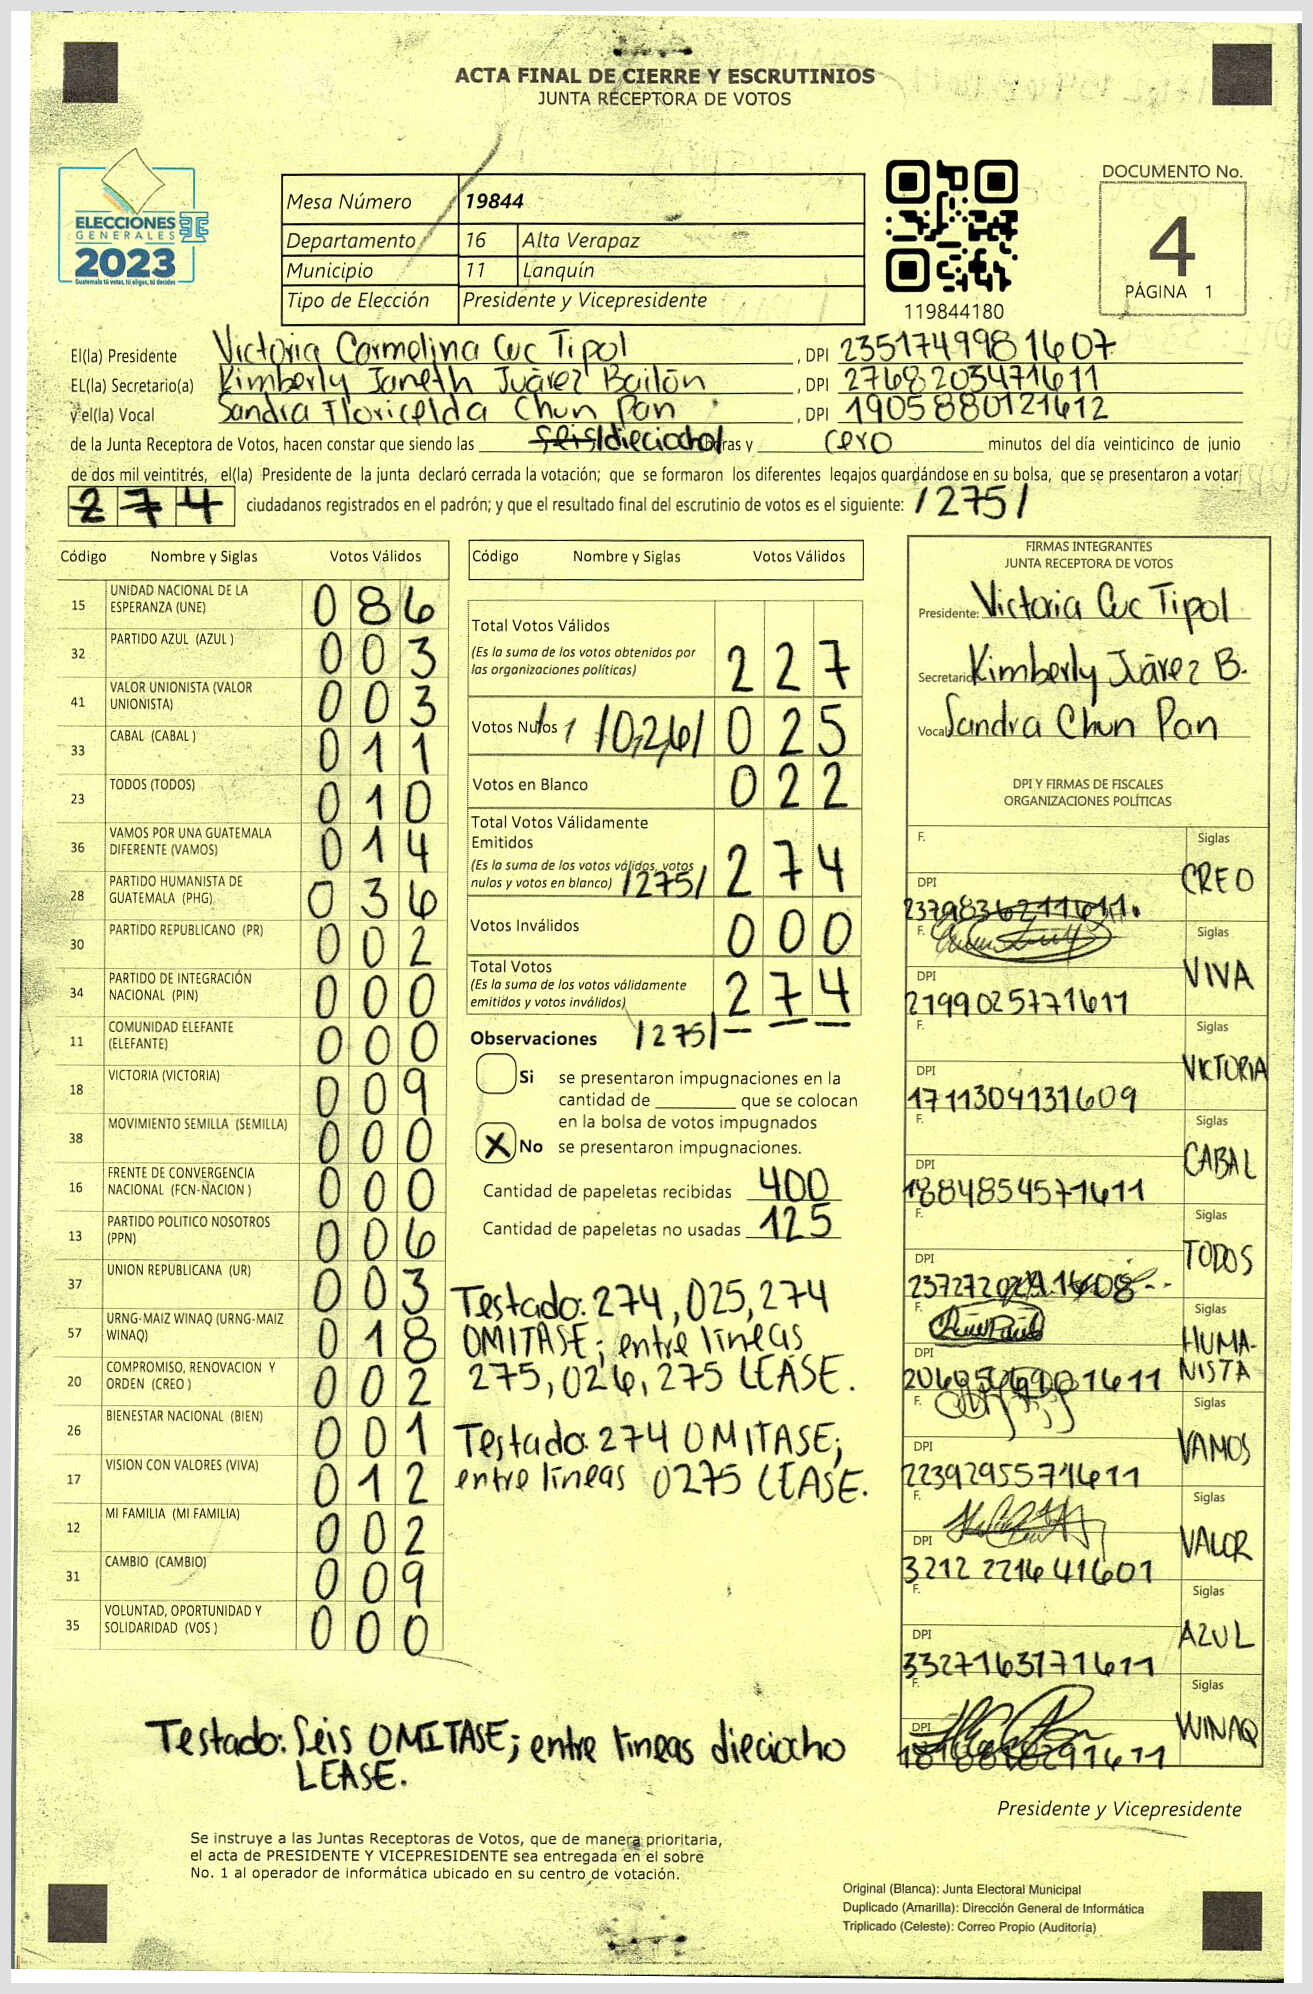 ACTA FINAL DE CIERRE Y ESCRUTINIOS
JUNTA RECEPTORA DE VOTOS
ELECCIONES
GENERALES
2023
Guatemala tú votas, tú eliges, tú decides
Mesa Número 19844
Departamento 16 Alta Verapaz
Municipio 11 Lanquín
Tipo de Elección Presidente y Vicepresidente
119844180
DOCUMENTO No.
4
PÁGINA 1
El(la) Presidente Victoria Carmelina Cuc Tipol , DPI 2351749981607
EL(la) Secretario(a) Kimberly Janeth Juárez Bailón , DPI 2768203471611
y el(la) Vocal Sandra Floricelda Chun Pan , DPI 1905880121612
de la Junta Receptora de Votos, hacen constar que siendo las seis /dieciocho/ horas y cero minutos del día veinticinco de junio
de dos mil veintitrés, el(la) Presidente de la junta declaró cerrada la votación; que se formaron los diferentes legajos guardándose en su bolsa, que se presentaron a votar
274 ciudadanos registrados en el padrón; y que el resultado final del escrutinio de votos es el siguiente: /275/
Código Nombre y Siglas Votos Válidos
15 UNIDAD NACIONAL DE LA ESPERANZA (UNE) 086
32 PARTIDO AZUL (AZUL ) 003
41 VALOR UNIONISTA (VALOR UNIONISTA) 003
33 CABAL (CABAL ) 011
23 TODOS (TODOS) 010
36 VAMOS POR UNA GUATEMALA DIFERENTE (VAMOS) 014
28 PARTIDO HUMANISTA DE GUATEMALA (PHG) 036
30 PARTIDO REPUBLICANO (PR) 002
34 PARTIDO DE INTEGRACIÓN NACIONAL (PIN) 000
11 COMUNIDAD ELEFANTE (ELEFANTE) 000
18 VICTORIA (VICTORIA) 009
38 MOVIMIENTO SEMILLA (SEMILLA) 000
16 FRENTE DE CONVERGENCIA NACIONAL (FCN-NACION ) 000
13 PARTIDO POLITICO NOSOTROS (PPN) 006
37 UNION REPUBLICANA (UR) 003
57 URNG-MAIZ WINAQ (URNG-MAIZ WINAQ) 018
20 COMPROMISO, RENOVACION Y ORDEN (CREO ) 002
26 BIENESTAR NACIONAL (BIEN) 001
17 VISION CON VALORES (VIVA) 012
12 MI FAMILIA (MI FAMILIA) 002
31 CAMBIO (CAMBIO) 009
35 VOLUNTAD, OPORTUNIDAD Y SOLIDARIDAD (VOS ) 000
Código Nombre y Siglas Votos Válidos
Total Votos Válidos
(Es la suma de los votos obtenidos por
las organizaciones políticas) 227
Votos Nulos /026/ 025
Votos en Blanco 022
Total Votos Válidamente
Emitidos
(Es la suma de los votos válidos, votos
nulos y votos en blanco) /275/ 274
Votos Inválidos 000
Total Votos
(Es la suma de los votos válidamente
emitidos y votos inválidos) 274
Observaciones /275/
Si se presentaron impugnaciones en la
cantidad de ________ que se colocan
en la bolsa de votos impugnados
X No se presentaron impugnaciones.
Cantidad de papeletas recibidas 400
Cantidad de papeletas no usadas 125
Testado: 274, 025, 274
OMITASE; entre líneas
275, 026, 275 LEASE.
Testado: 274 OMITASE;
entre líneas 0275 LEASE.
FIRMAS INTEGRANTES
JUNTA RECEPTORA DE VOTOS
Presidente: Victoria Cuc Tipol
Secretario Kimberly Juárez B.
Vocal Sandra Chun Pan
DPI Y FIRMAS DE FISCALES
ORGANIZACIONES POLÍTICAS
F. Siglas
DPI CREO
F. Siglas
DPI 2199025771611 VIVA
F. Siglas
DPI 1711304131609 VICTORIA
F. Siglas
DPI 1884854571611 CABAL
F. Siglas
DPI TODOS
F. Siglas
DPI HUMANISTA
F. Siglas
DPI 2239295571611 VAMOS
F. Siglas
DPI 3212 22164 1601 VALOR
F. Siglas
DPI 3327163171611 AZUL
F. Siglas
DPI WINAQ
Testado: Seis OMITASE; entre líneas dieciocho
LEASE.
Presidente y Vicepresidente
Se instruye a las Juntas Receptoras de Votos, que de manera prioritaria,
el acta de PRESIDENTE Y VICEPRESIDENTE sea entregada en el sobre
No. 1 al operador de informática ubicado en su centro de votación.
Original (Blanca): Junta Electoral Municipal
Duplicado (Amarilla): Dirección General de Informática
Triplicado (Celeste): Correo Propio (Auditoría)